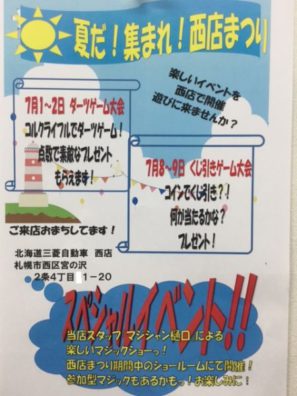 夏だ！集まれ！西店まつり
楽しいイベントを
西店で開催
遊びに来ませんか？
7月1～2日 ダーツゲーム大会
コルクライフルでダーツゲーム！
点数で素敵なプレゼント
もらえます！
7月8～9日 くじ引きゲーム大会
コインでくじ引き？！
何が当たるかな？
プレゼント！
ご来店おまちしてます！
北海道三菱自動車 西店
札幌市西区宮の沢
2条4丁目1－20
スペシャルイベント!!
当店スタッフ マジシャン樋口による
楽しいマジックショーっ！
西店まつり期間中のショールームにて開催！
参加型マジックもあるかもっ！お楽しみに！